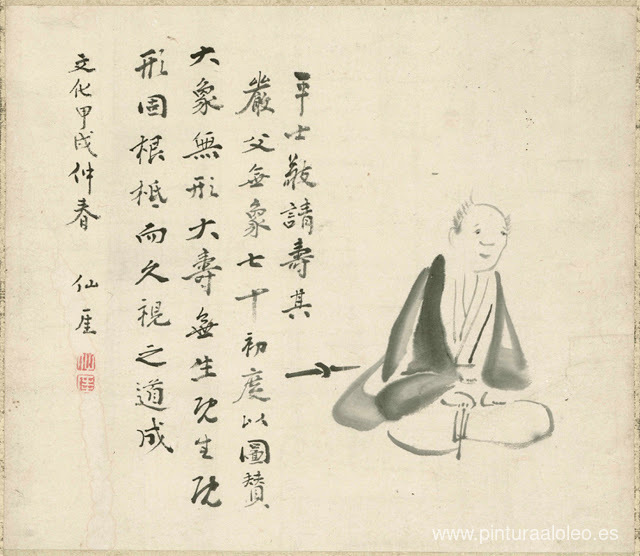 平士敬請壽其
嚴父無象七十初度以圖賛
大象無形大壽無生既生既
形固根柢而久視之道成
文化甲戌仲春 仙厓
仙厓
www.pinturaaloleo.es